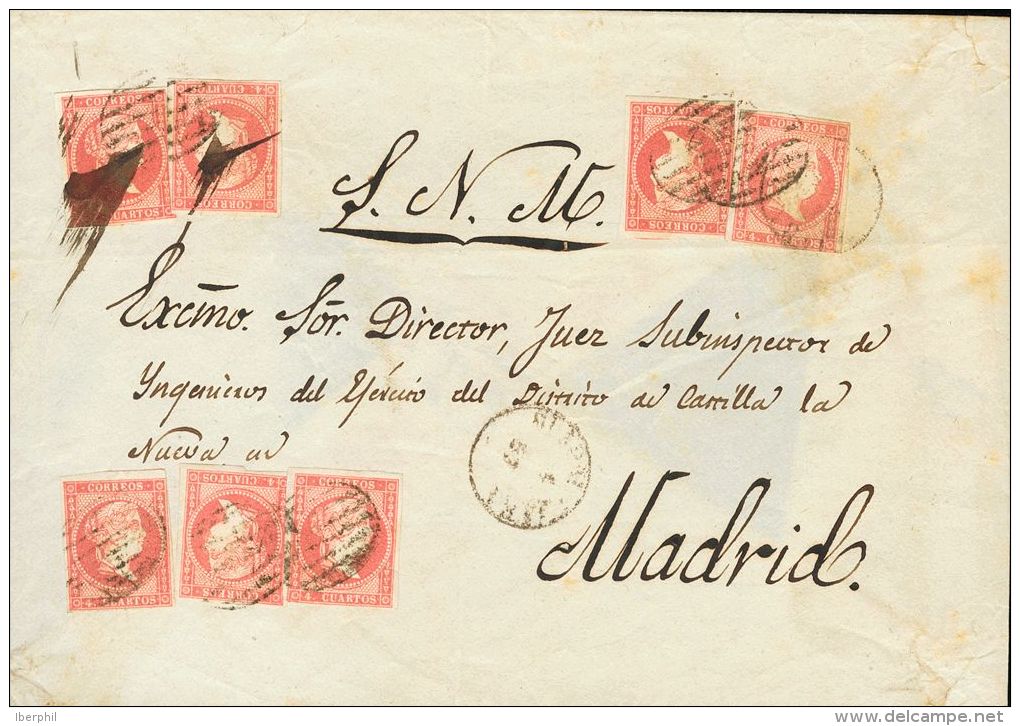 CORREOS
4. CUARTOS
4. CUARTOS
CORREOS
4. CUARTOS
CUARTOS
CORREOS
CORREOS
S. N. M.
Excmo. Sõr. Director, Juez Subinspector de
Yngenieros del Ejército del Distrito de Castilla la
Nueva en
CORREOS
4. CUARTOS
4. CUARTOS
CORREOS
CORREOS
4. CUARTOS
Madrid.
Iberphil
www.delcampe.net